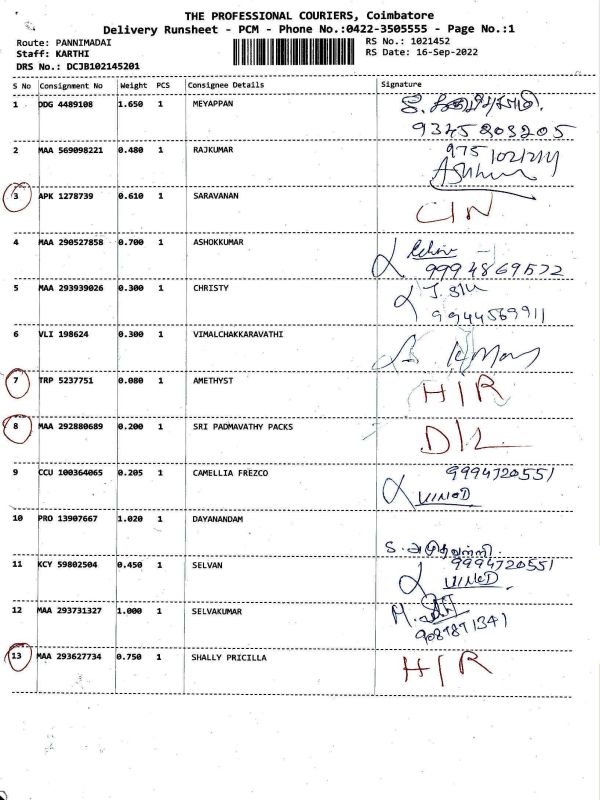 THE PROFESSIONAL COURIERS, Coimbatore
Delivery Runsheet - PCM - Phone No.:0422-3505555 - Page No.:1
Route: PANNIMADAI
Staff: KARTHI
DRS No.: DCJB102145201
RS No.: 1021452
RS Date: 16-Sep-2022
S No Consignment No Weight PCS Consignee Details Signature
1 DDG 4489108 1.650 1 MEYAPPAN
9345803205
2 MAA 569098221 0.480 1 RAJKUMAR
3 APK 1278739 0.610 1 SARAVANAN C/N
4 MAA 290527858 0.700 1 ASHOKKUMAR
9994869572
5 MAA 293939026 0.300 1 CHRISTY
9944569911
6 VLI 198624 0.300 1 VIMALCHAKKARAVATHI
7 TRP 5237751 0.080 1 AMETHYST H/R
8 MAA 292880689 0.200 1 SRI PADMAVATHY PACKS D/L
9 CCU 100364065 0.205 1 CAMELLIA FREZCO 9994720551
VINOD
10 PRO 13907667 1.020 1 DAYANANDAM
11 KCY 59802504 0.450 1 SELVAN 9994720551
VINOD
12 MAA 293731327 1.000 1 SELVAKUMAR
9087871341
13 MAA 293627734 0.750 1 SHALLY PRICILLA H/R